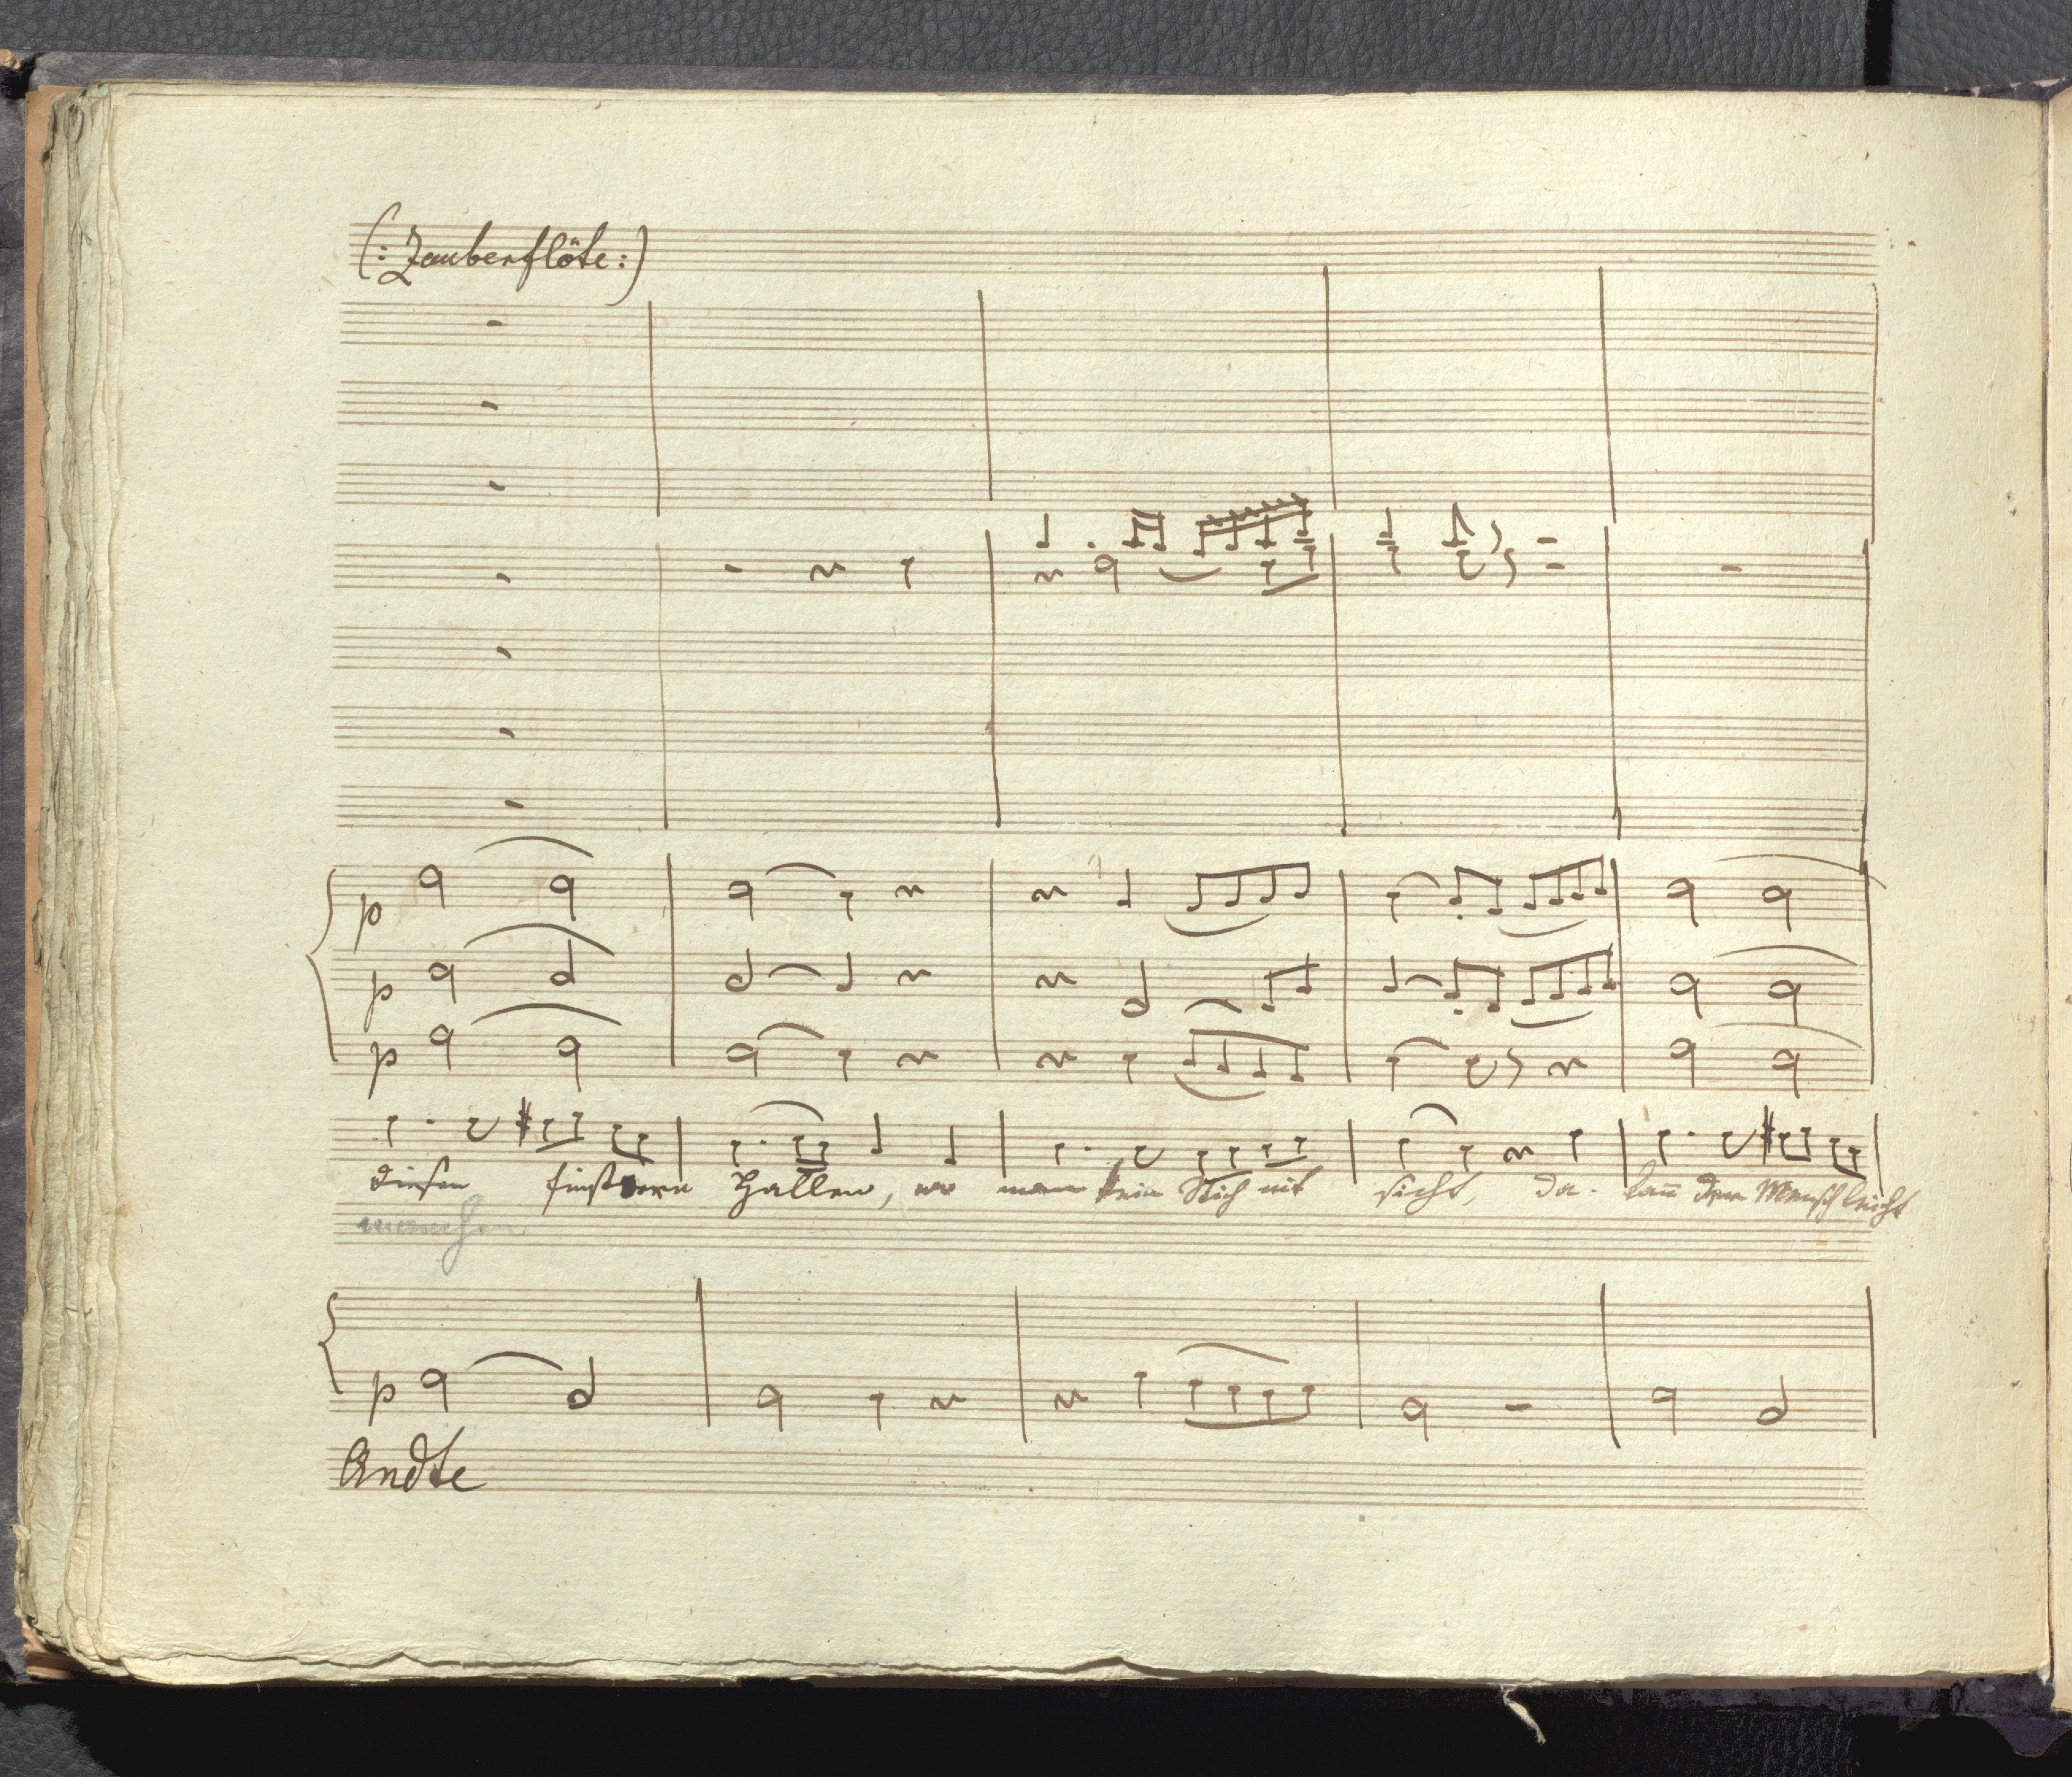 (: Zauberflöte :)
p
p
p
diesen finstern Hallen, wo man kein Stich nit sicht, da kan̄ der Mensch leicht
manchen
p
Andte